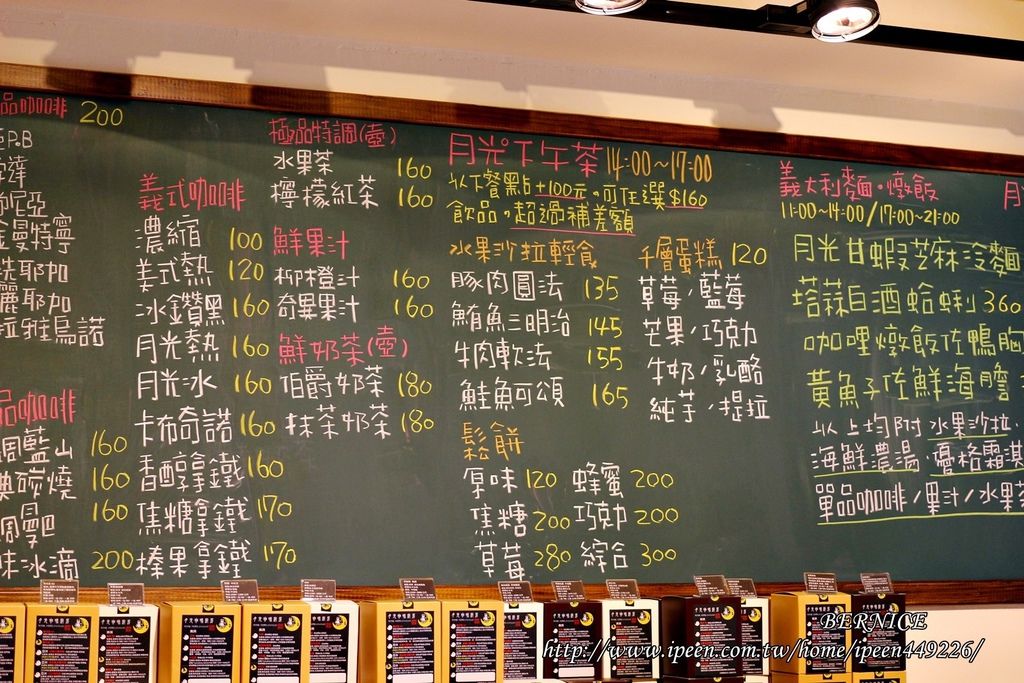 品咖啡 200
曼特寧
耶加
耶加
拉雅烏諾
品咖啡
藍山 160
碳燒 160
周曼巴
味冰滴 200
義式咖啡
濃縮 100
美式熱 120
冰鑽黑 160
月光熱 160
月光冰 160
卡布奇諾 160
香醇拿鐵 160
焦糖拿鐵 170
榛果拿鐵 170
極品特調(壺)
水果茶 160
檸檬紅茶 160
鮮果汁
柳橙汁 160
奇異果汁 160
鮮奶茶(壺)
伯爵奶茶 180
抹茶奶茶 180
月光下午茶 14:00~17:00
以下餐點+100元。可任選$160
飲品。超過補差額
水果沙拉輕食
豚肉圓法 135
鮪魚三明治 145
牛肉軟法 155
鮭魚可頌 165
千層蛋糕 120
草莓/藍莓
芒果/巧克力
牛奶/乳酪
純芋/提拉
鬆餅
原味 120 蜂蜜 200
焦糖 200 巧克力 200
草莓 280 綜合 300
義大利麵。燉飯
11:00~14:00/17:00~21:00
月光甘蝦芝麻冷麵
塔蒜白酒蛤蜊 360
咖哩燉飯佐鴨胸
黃魚子佐鮮海膽
以上均附水果沙拉.
海鮮濃湯.優格霜淇
單品咖啡/果汁/水果茶
月
BERNICE
http://www.ipeen.com.tw/home/ipeen449226/